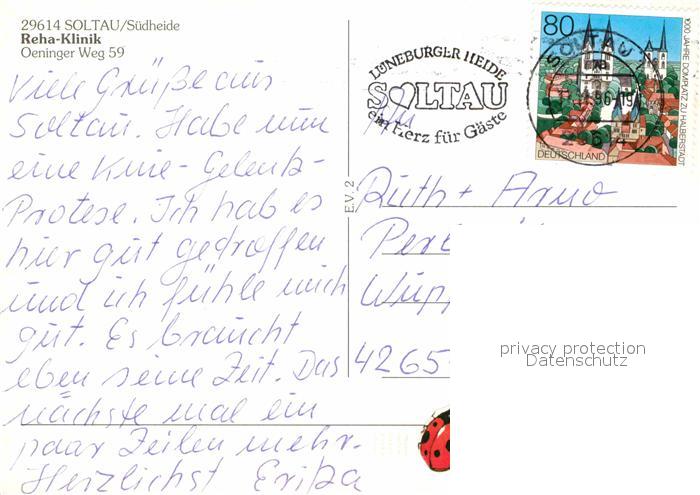 29614 SOLTAU/Südheide
Reha-Klinik
Oeninger Weg 59
Viele Grüße aus
Soltau. Habe nun
eine Knie-Gelenk-
Protese. Ich hab es
hier gut gedroffen
und ich fühle mich
gut. Es braucht
eben seine Zeit. Das
nächste mal ein
paar Zeilen mehr.
Herzlichst Erika
LÜNEBURGER HEIDE
SOLTAU
ein Herz für Gäste
SOLTAU
80
DEUTSCHLAND
1000 JAHRE DOMPLATZ ZU HALBERSTADT
E.V. 2
Ruth + Arno
Per
Wupp
4265
privacy protection
Datenschutz